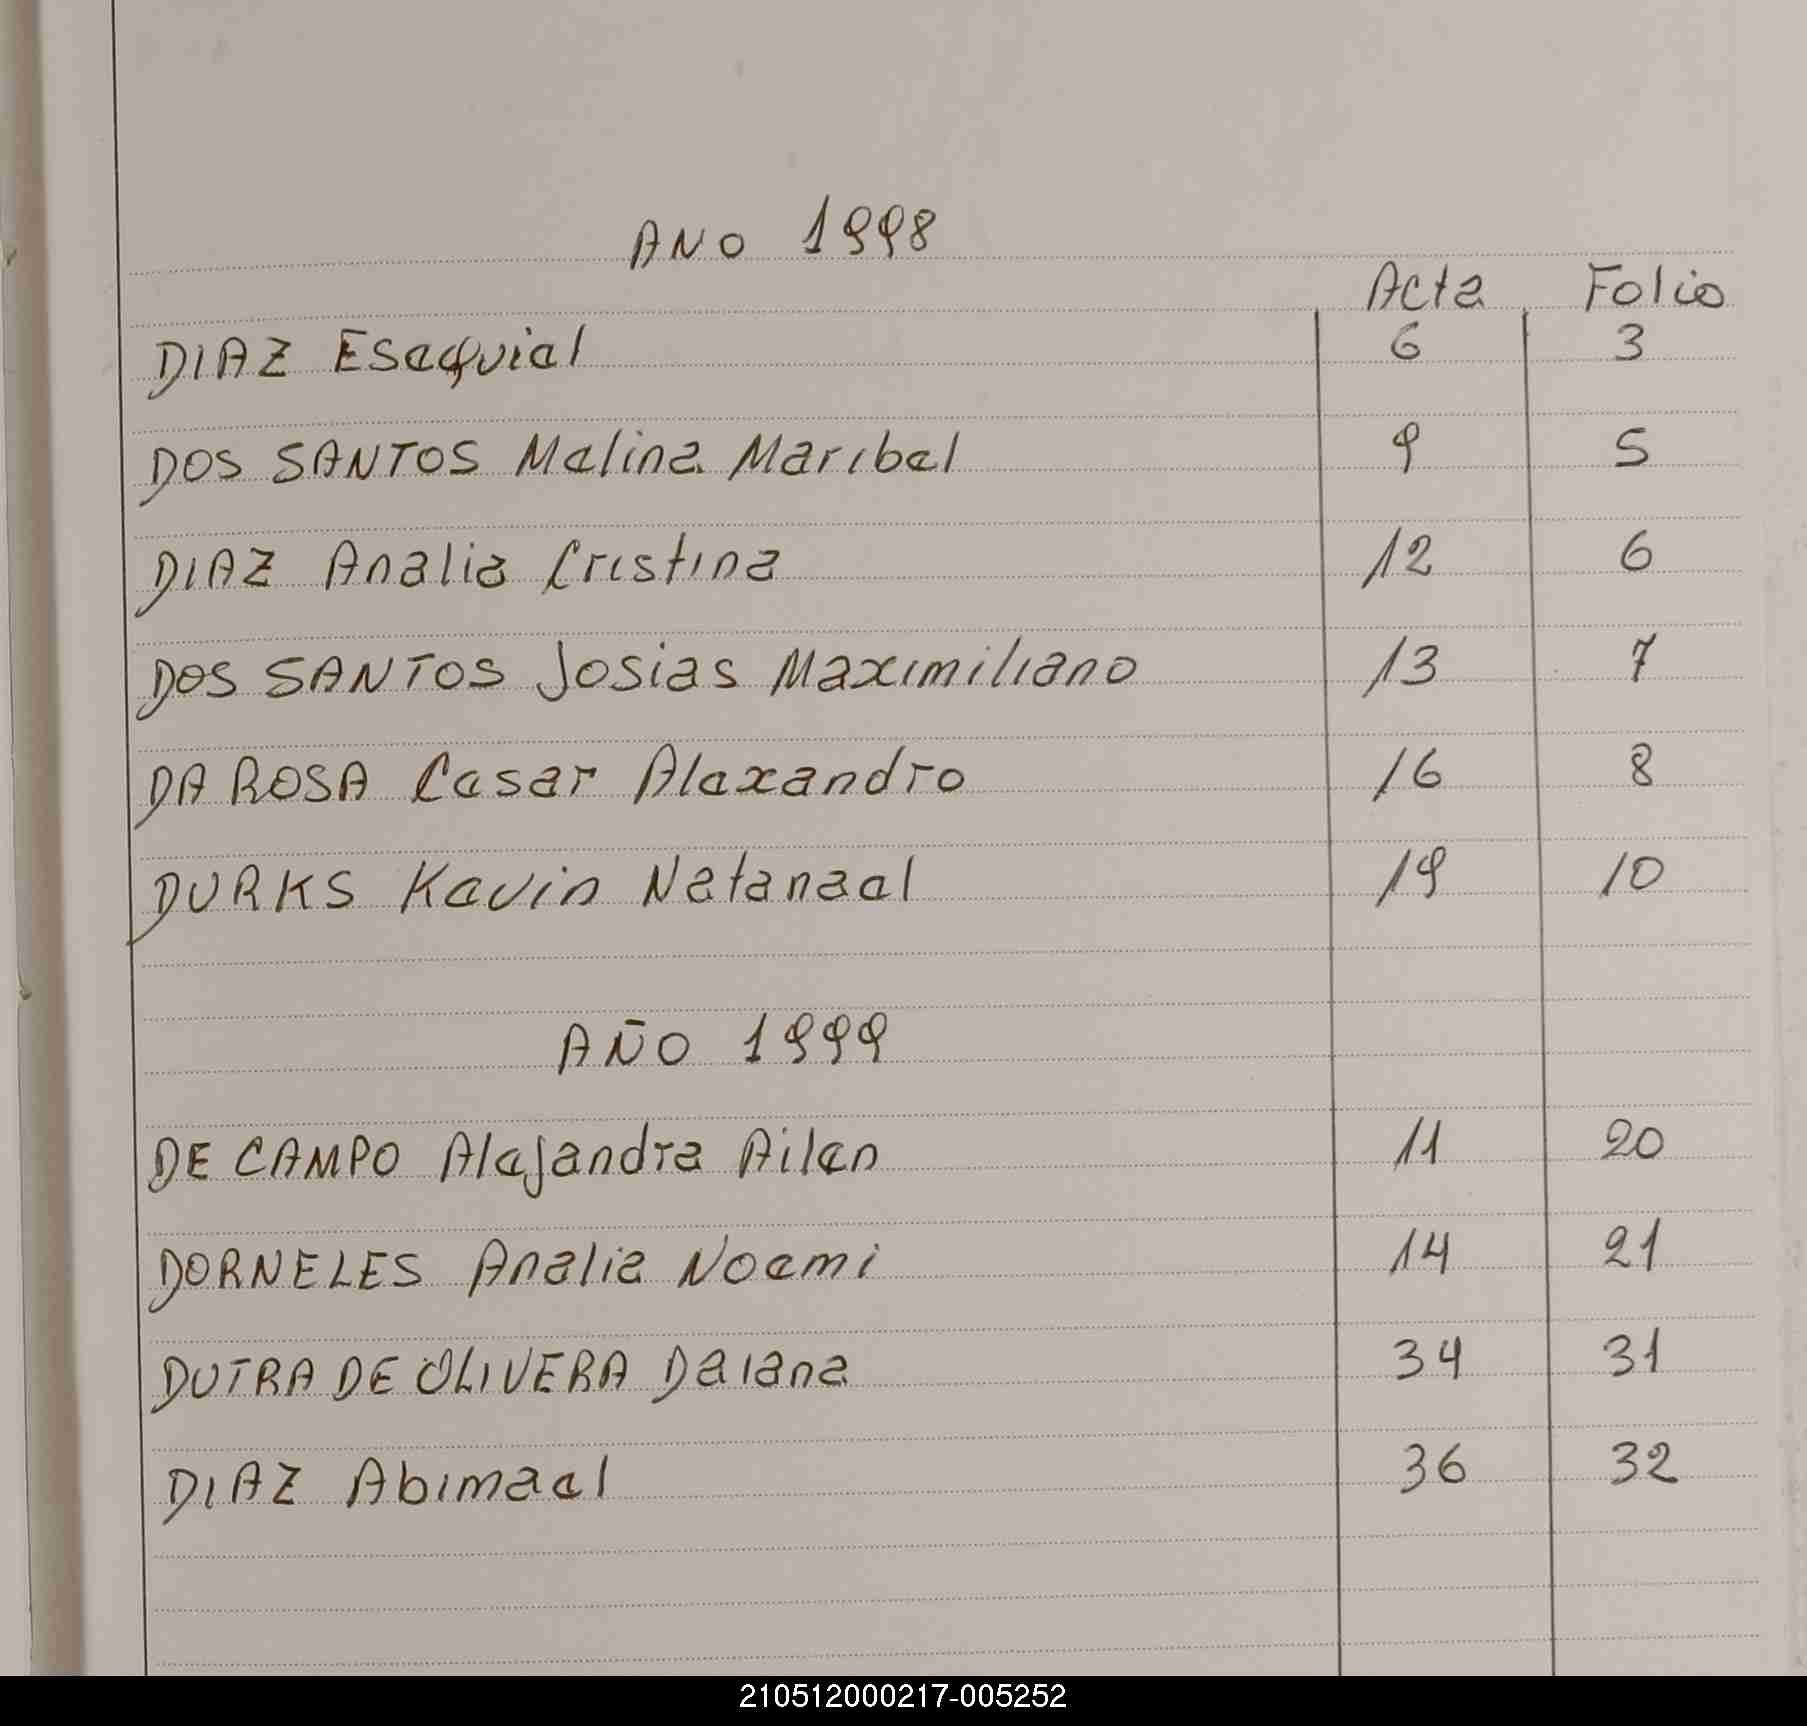 ANO 1998
Acta Folio
DIAZ Esequiel 6 3
DOS SANTOS Melina Maribel 9 5
DIAZ Analia Cristina 12 6
DOS SANTOS Josias Maximiliano 13 7
DA ROSA Cesar Alexandro 16 8
DURKS Kevin Natanael 19 10
AÑO 1999
DE CAMPO Alejandra Ailen 11 20
DORNELES Analia Noemi 14 21
DUTRA DE OLIVERA Daiana 34 31
DIAZ Abimael 36 32
210512000217-005252